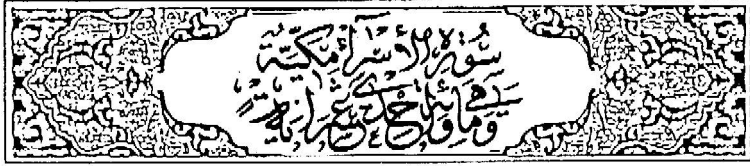 سورة الإسراء مكية
وهي مائة وإحدى عشرة آية